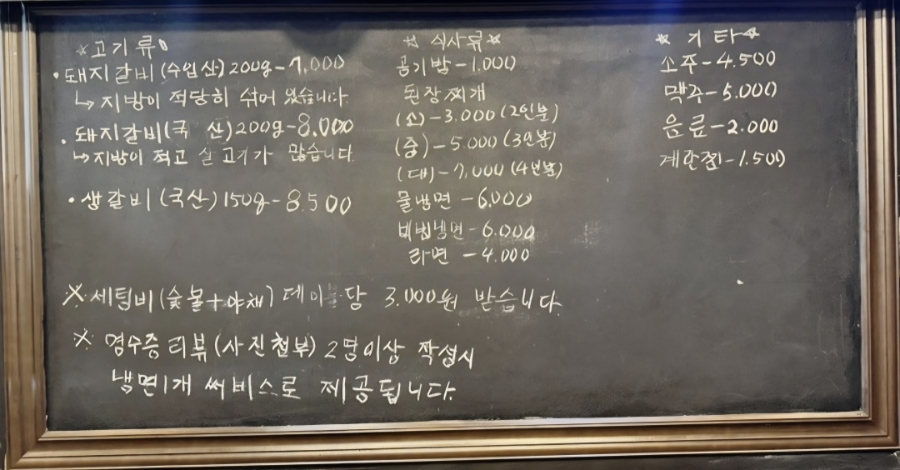 *고기류
• 돼지갈비(수입산)200g-7,000
↳ 지방이 적당히 섞어 있습니다.
• 돼지갈비(국 산)200g-8.000
↳ 지방이 적고 살고기가 많습니다.
• 생갈비(국산)150g-8.500
* 식사류 *
공기밥-1.000
된장찌개
(소)-3.000(2인분)
(중)-5.000(3인분)
(대)-7,000(4인분)
물냉면-6,000
비빔냉면-6.000
라면-4.000
* 기타 *
소주-4,500
맥주-5.000
음료-2.000
계란찜-1.500
※ 세팅비(숯불+야채) 테이블당 3.000원 받습니다.
※ 영수증 리뷰(사진첨부) 2명이상 작성시
냉면1개 써비스로 제공됩니다.